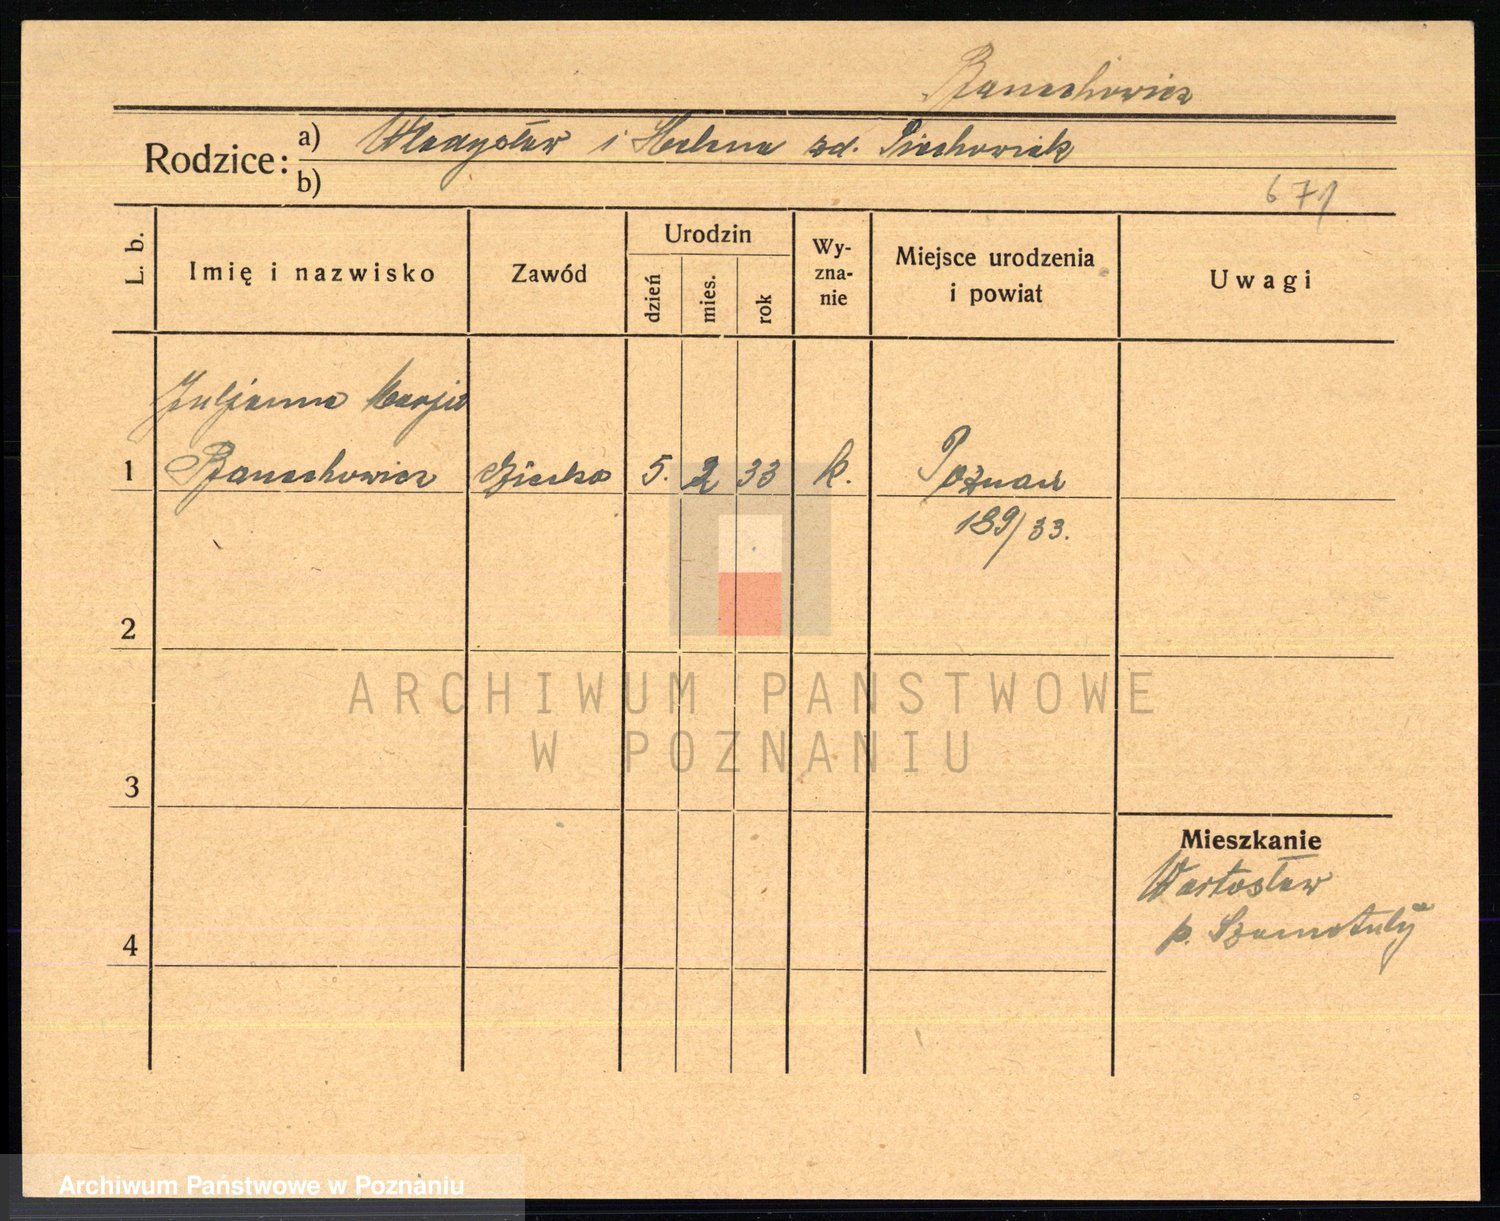 Banachowicz
Rodzice: a) Władysław i Helena zd. Piechowiak
b)
671
L. b.
Imię i nazwisko
Zawód
Urodzin
dzień
mies.
rok
Wy-
zna-
nie
Miejsce urodzenia
i powiat
Uwagi
Juljanna Marja
1 Banachowicz Dziecko 5. 2 33 k. Poznań
189/33.
2
3
4
Mieszkanie
Wartosław
p. Szamotuły
ARCHIWUM PAŃSTWOWE
W POZNANIU
Archiwum Państwowe w Poznaniu